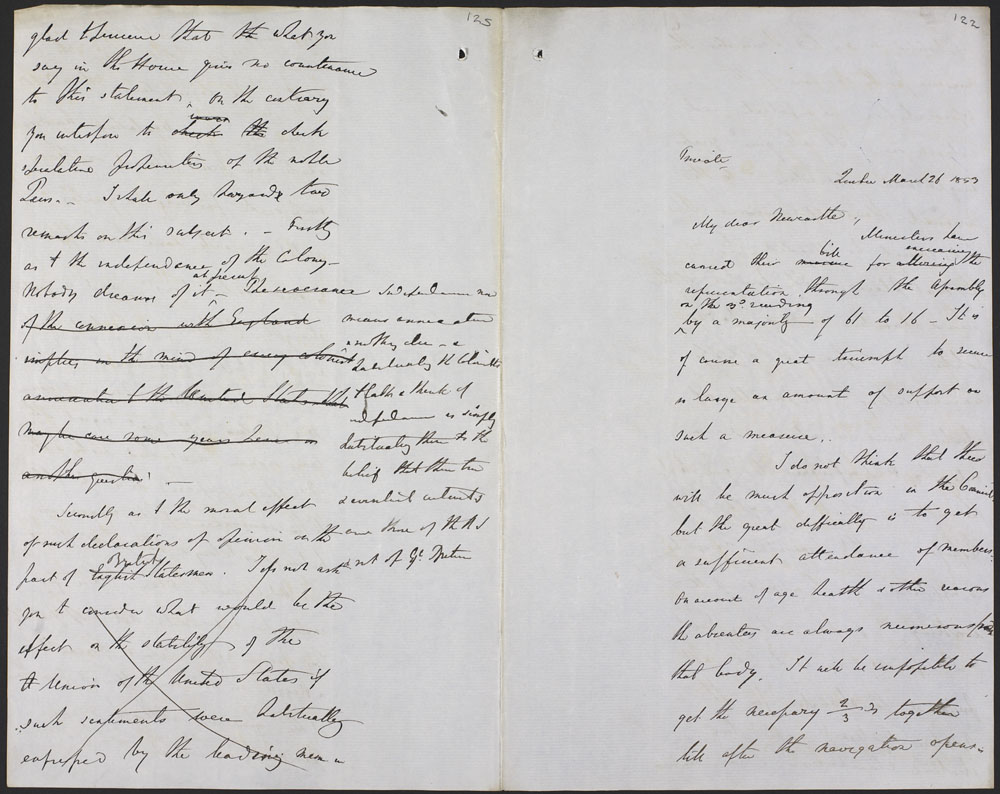 125
glad to perceive that the what you
say in the House gives no countenance
to this statement, on the contrary
you interfere to check the check
speculative propensities of the noble
Peers. - I shall only hazard two
remarks on this subject. - Firstly
as to the independence of the Colony -
at present
Nobody dreams of it - The severance
of the connexion with England
implies in the mind of every colonist
annexation to the United States - this
may be or come some years hence is
another question. -
Independence
means annexation
habitually the Colonists
to think of
independence is simply
habitually then to the
belief that their
are those of the U S
not of Gt. Britain
Secondly as to the moral effect
of such declarations of opinion on the
British
part of English Statesmen. I do not ask
you to consider what would be the
effect on the stability of the
Union of the United States if
such sentiments were habitually
expressed by the leading men -
122
Private
Quebec March 26 1853
My dear Newcastle,
Ministers have
bill increasing
carried their measure for altering the
representation through the Assembly
on the 3d. reading
by a majority of 61 to 16 - It is
of course a great triumph to secure
so large an amount of support on
such a measure.
I do not think that there
will be much opposition in the Council
but the great difficulty is to get
a sufficient attendance of members.
On account of age health & other reasons
the absentees are always numerous from
that body. It will be impossible to
get the necessary 2/3ds together
till after the navigation opens -